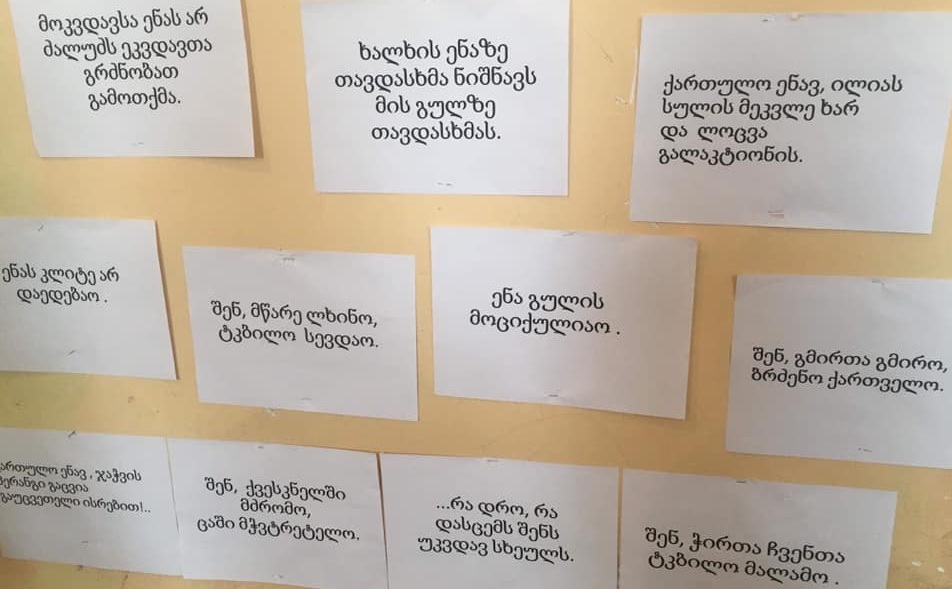 მოკვდავსა ენას არ
ძალუძს ეკვდავთა
გრძნობათ
გამოთქმა.
ხალხის ენაზე
თავდასხმა ნიშნავს
მის გულზე
თავდასხმას.
ქართულო ენავ, ილიას
სულის მეკვლე ხარ
და ლოცვა
გალაკტიონის.
ენას კლიტე არ
დაედებაო .
შენ, მწარე ლხინო,
ტკბილო სევდაო.
ენა გულის
მოციქულიაო .
შენ, გმირთა გმირო,
ბრძენო ქართველო.
ენავ , ჯაჭვის
გაცვია
გაუცვეთელი ისრებით!..
შენ, ქვესკნელში
მძრომო,
ცაში მჭვტრეტელო.
...რა დრო, რა
დასცემს შენს
უკვდავ სხეულს.
შენ, ჭირთა ჩვენთა
ტკბილო მალამო .